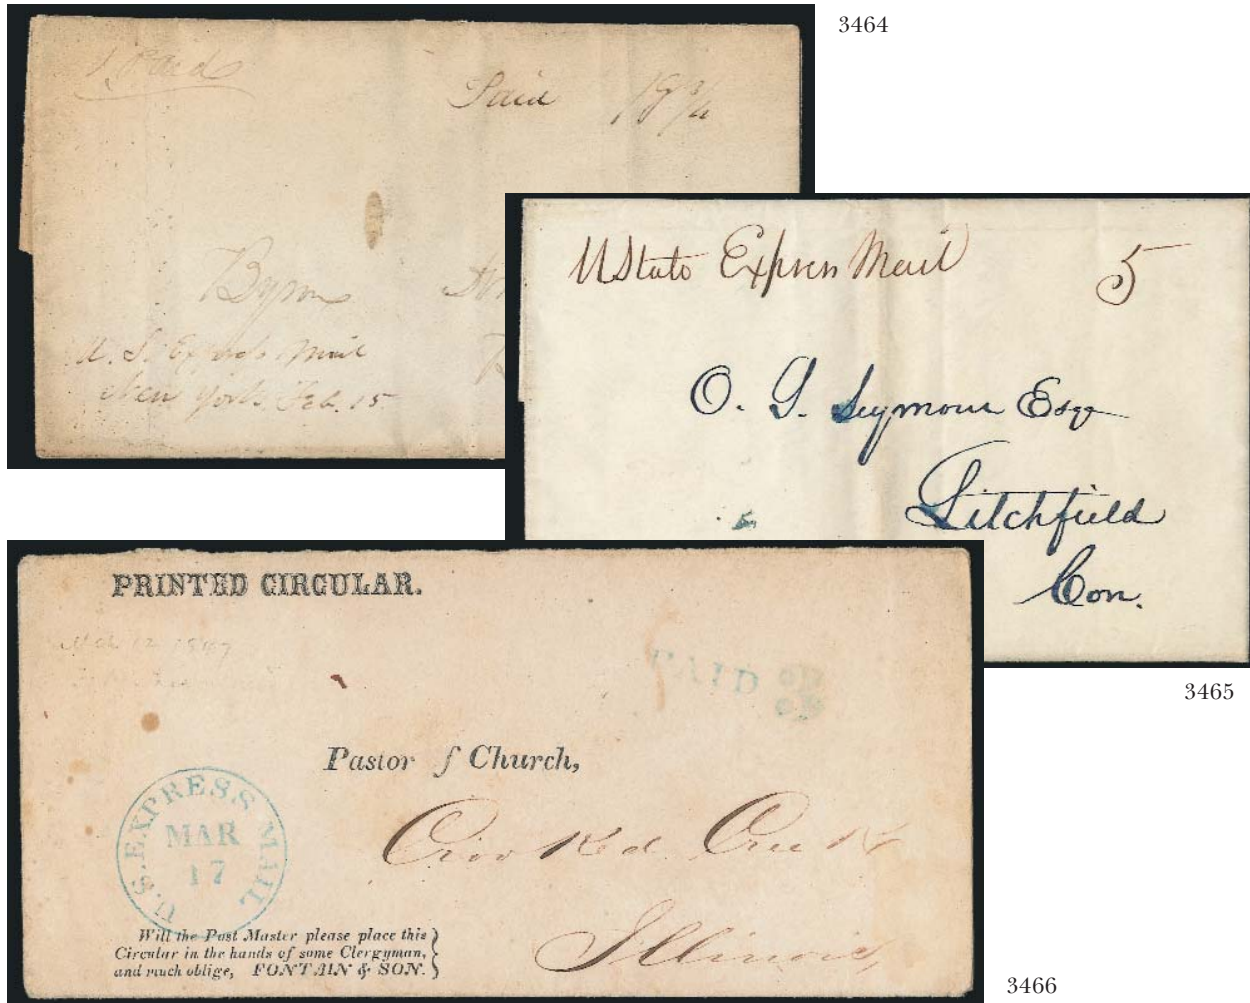 3464
Paid
Paid 18 3/4
Byron
U. S. Express Mail
New York Feb. 15
UState Express Mail 5
O. S. Seymour Esqr
Litchfield
Con.
3465
PRINTED CIRCULAR.
Mch 12 1847
PAID
Pastor of Church,
Crooked Creek
Illinois,
U.S. EXPRESS MAIL
MAR
17
Will the Post Master please place this
Circular in the hands of some Clergyman,
and much oblige, FONTAIN & SON.
3466